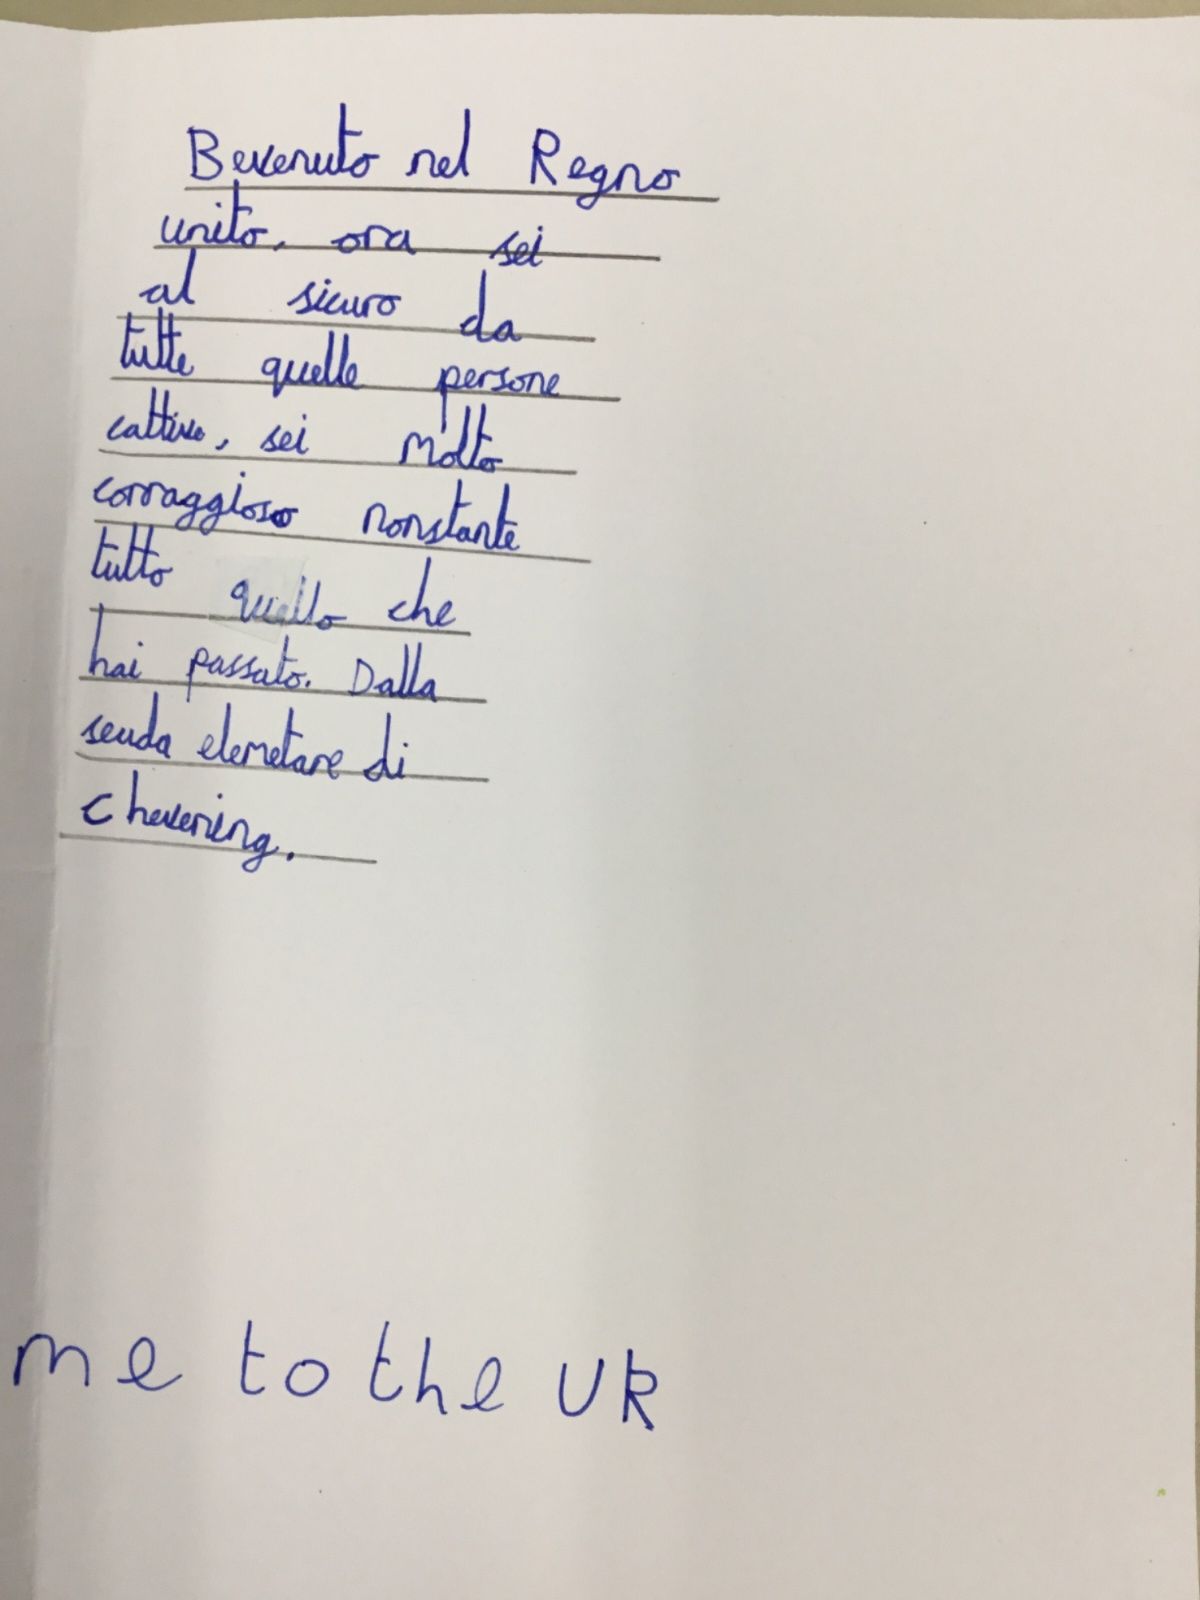 Bevenuto nel Regno
unito, ora sei
al sicuro da
tutte quelle persone
cattive, sei molto
corraggioso nonstante
tutto quello che
hai passato. Dalla
scuda elemetare di
Chevening.
me to the UK